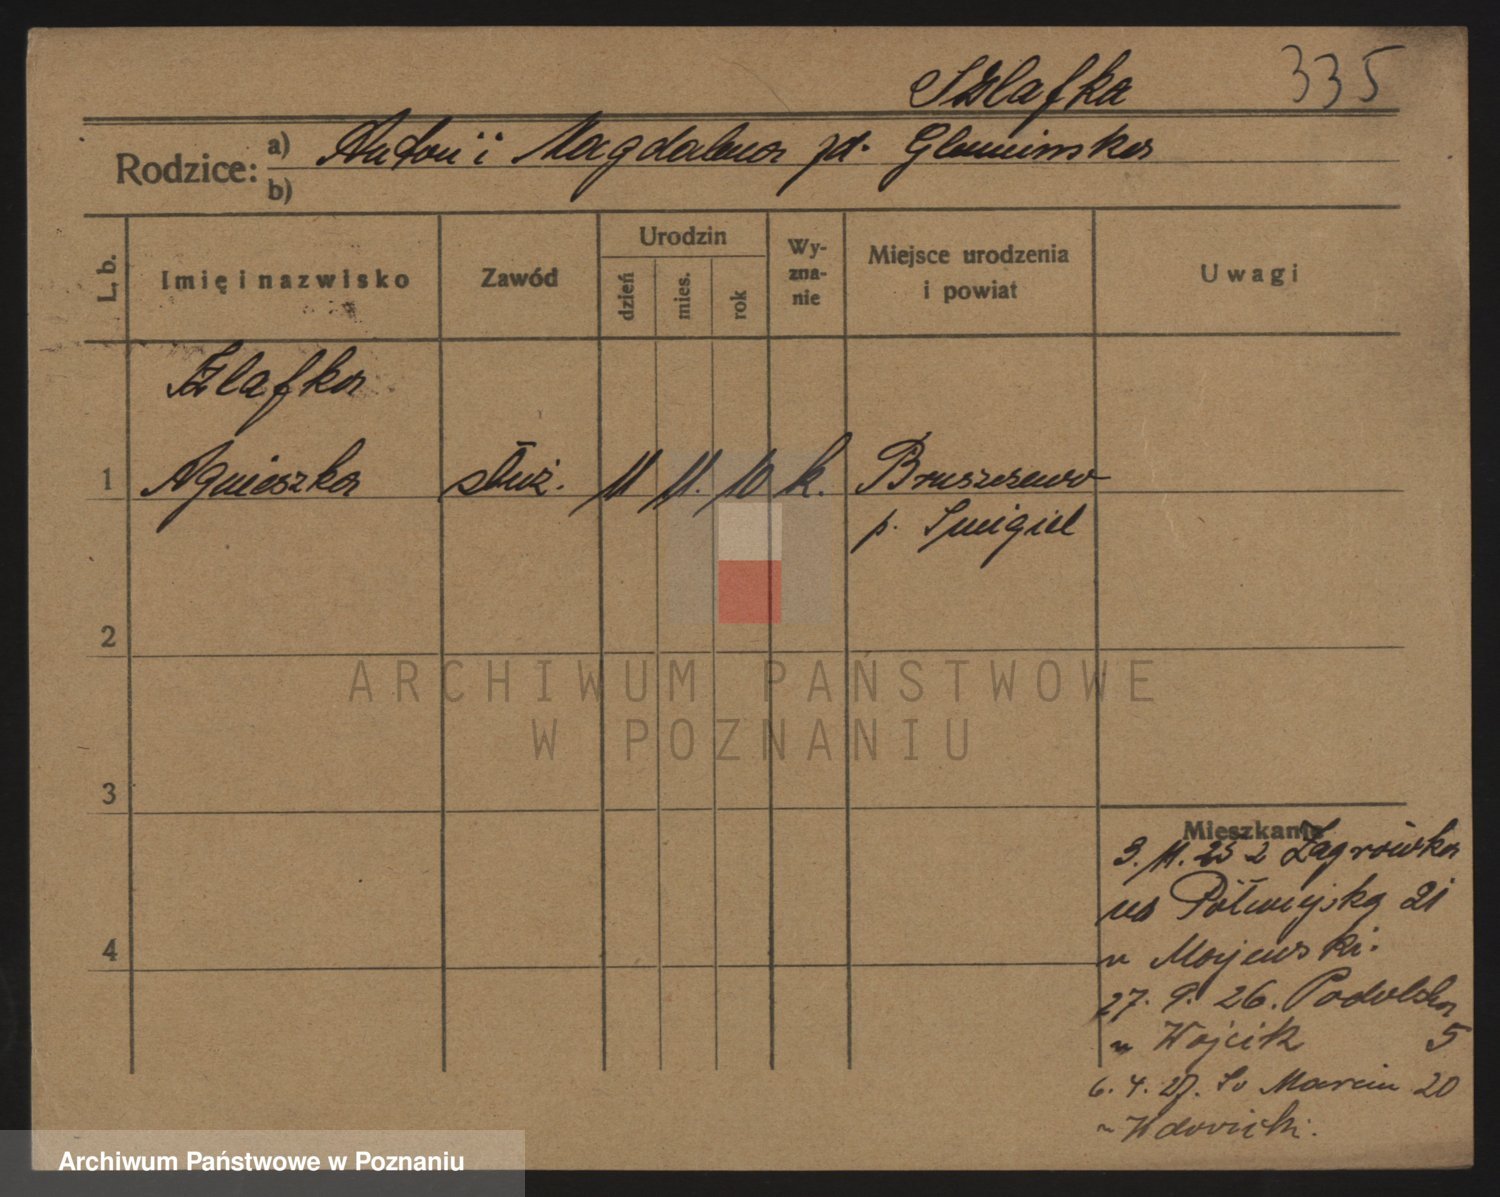 Szlafka 335
Rodzice: a) Antoni i Magdalena pd. Glumińska
b)
L. b. Imię i nazwisko Zawód Urodzin dzień mies. rok Wyzna-nie Miejsce urodzenia i powiat Uwagi
Szlafka
1 Agnieszka służ. 11 11. 10 k. Bruszczewo
p. Smigiel
2
ARCHIWUM PAŃSTWOWE
W POZNANIU
3
Mieszkanie
3. 11. 25 z Zagrówka
na Półwiejską 21
u Majewski.
27. 9. 26. Podolska
u Wojcik 5
6. 4. 27. Sw Marcin 20
u Wdowicki.
4
Archiwum Państwowe w Poznaniu